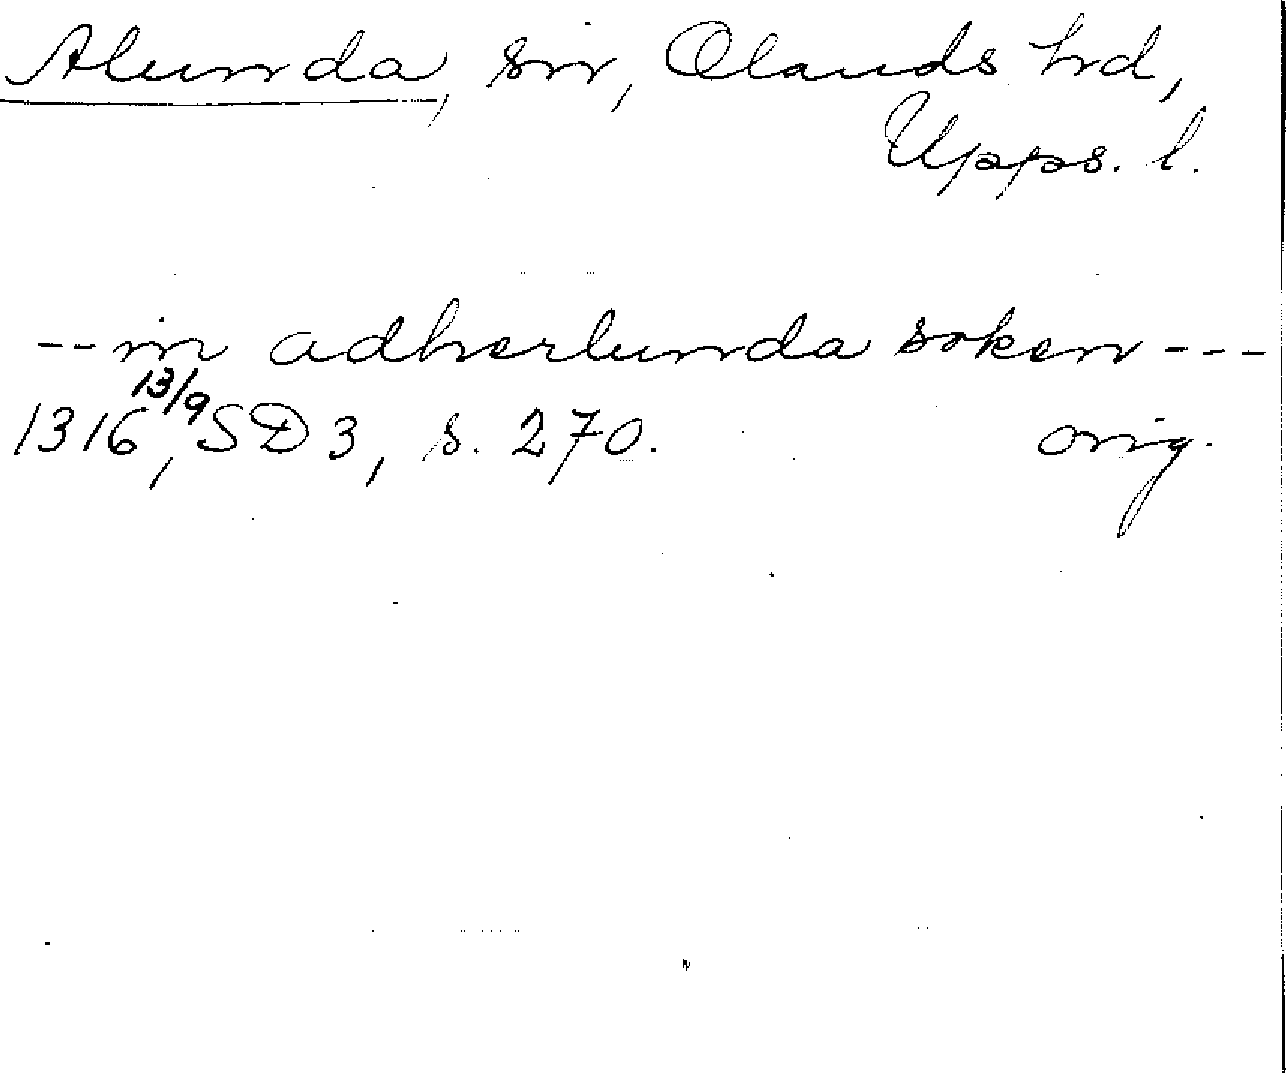 Alunda, sn, Olands hd,
Upps. l.
-- in adherlunda soken ---
1316 13/9, SD 3, s. 270. orig.